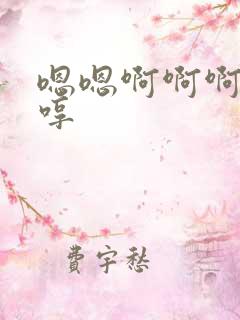 嗯嗯啊啊啊
哼
费宇愁